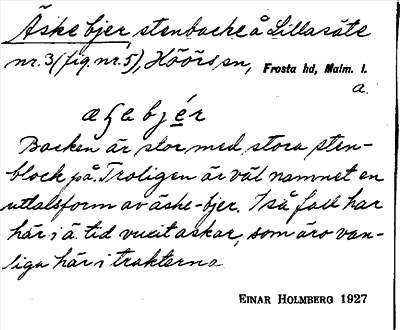 Äskebjer stenbacke å Lillasäte
nr. 3 (fig. nr. 5), Höörs sn, Frosta hd, Malm. l.
a.
bjér
Backen är stor med stora sten-
block på. Troligen är väl namnet en
uttalsform av äske-bjer. I så fall har
här i ä. tid vuxit askar, som äro van-
liga här i trakterna.
EINAR HOLMBERG 1927